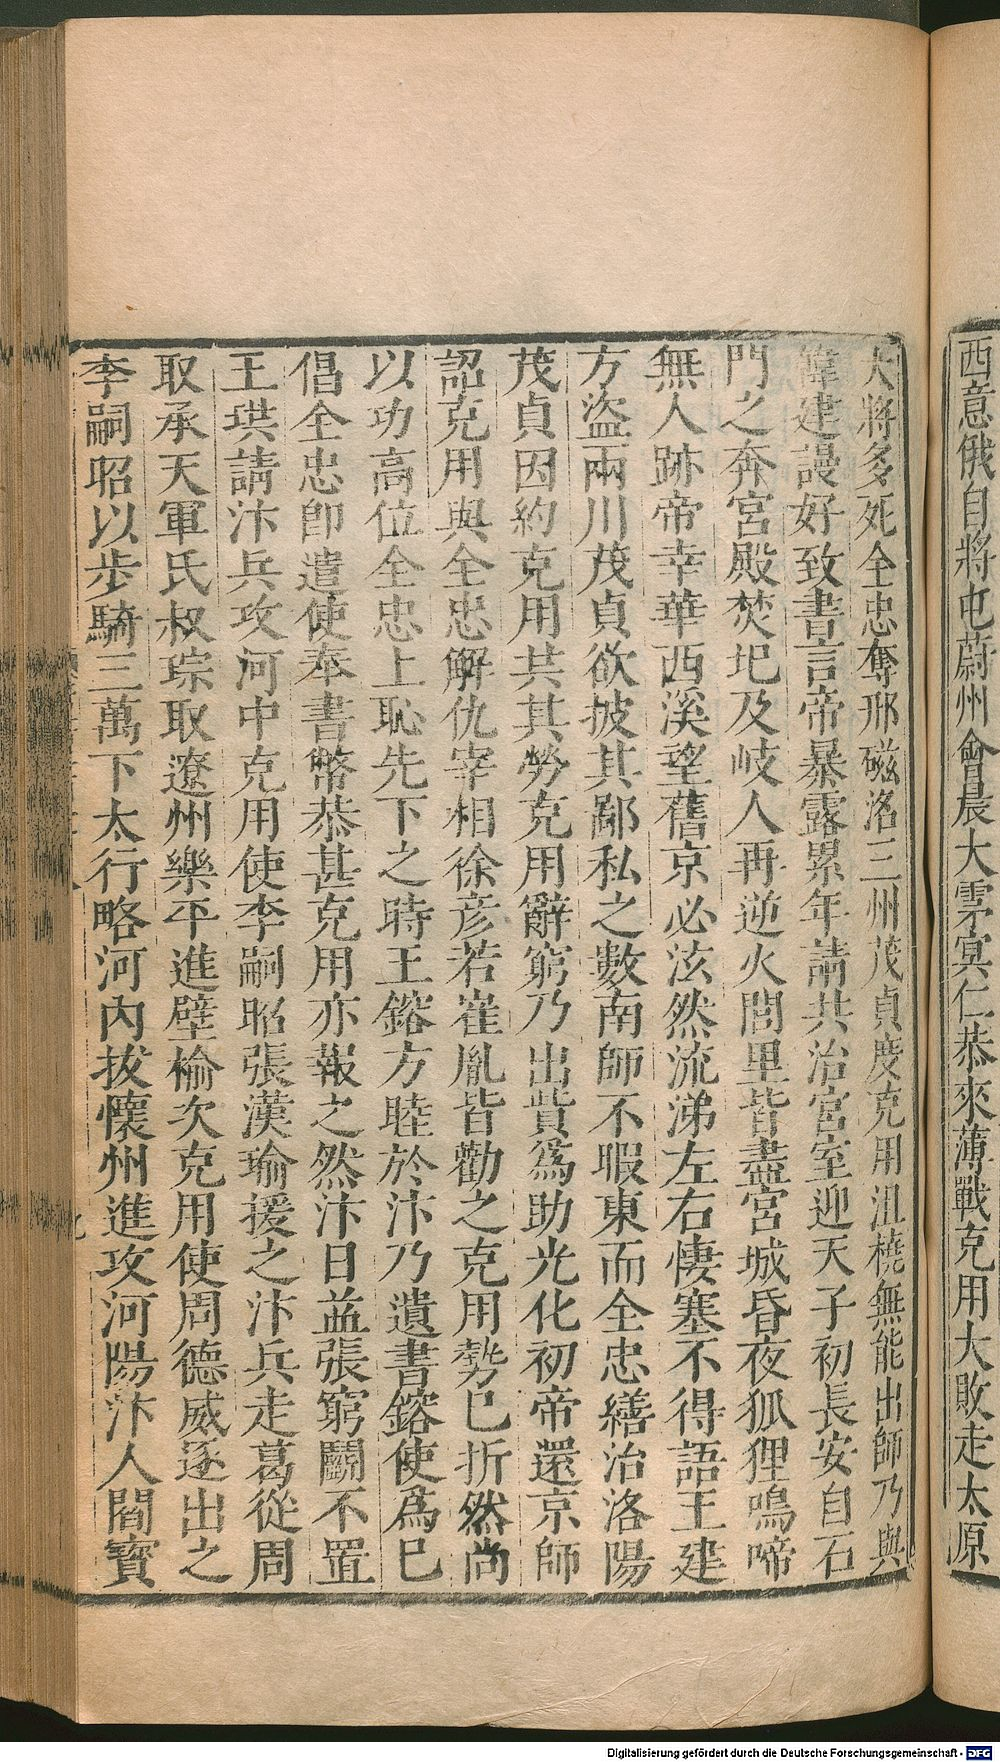 西意俄自將屯蔚州會晨大雺冥仁恭來薄戰克用大敗走太原
大將多死全忠奪邢磁洺三州茂貞度克用沮橈無能出師乃與
韓建謾好致書言帝暴露累年請共治宮室迎天子初長安自石
門之奔宮殿焚圯及岐人再逆火閭里皆盡宮城昏夜狐狸鳴啼
無人跡帝幸華西溪望舊京必泫然流涕左右悽塞不得語王建
方盜兩川茂貞欲披其鄙私之數南師不暇東而全忠繕治洛陽
茂貞因約克用共其勞克用辭窮乃出貲爲助光化初帝還京師
詔克用與全忠解仇宰相徐彥若崔胤皆勸之克用勢已折然尚
以功高位全忠上恥先下之時王鎔方睦於汴乃遺書鎔使爲已
倡全忠卽遣使奉書幣恭甚克用亦報之然汴日益張窮鬬不置
王珙請汴兵攻河中克用使李嗣昭張漢瑜援之汴兵走葛從周
取承天軍氏叔琮取遼州樂平進壁榆次克用使周德威逐出之
李嗣昭以步騎三萬下太行略河內拔懷州進攻河陽汴人閻寶
Digitalisierung gefördert durch die Deutsche Forschungsgemeinschaft - DFG